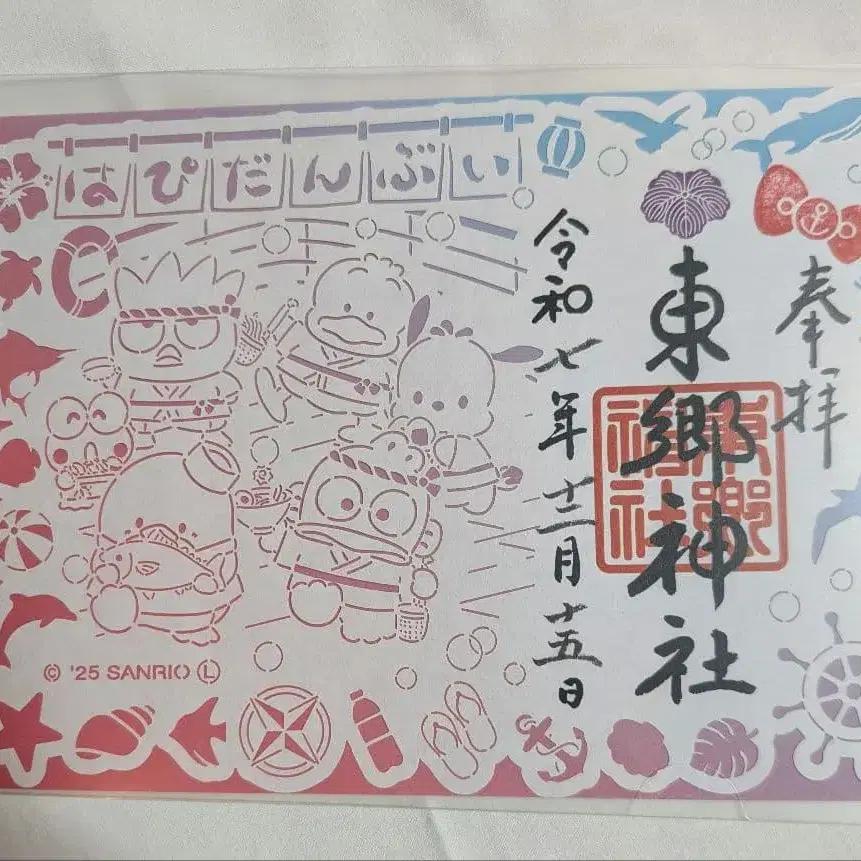 はぴだんぶい
奉拝
東郷神社
東郷神社
令和七年十二月十五日
© '25 SANRIO Ⓛ